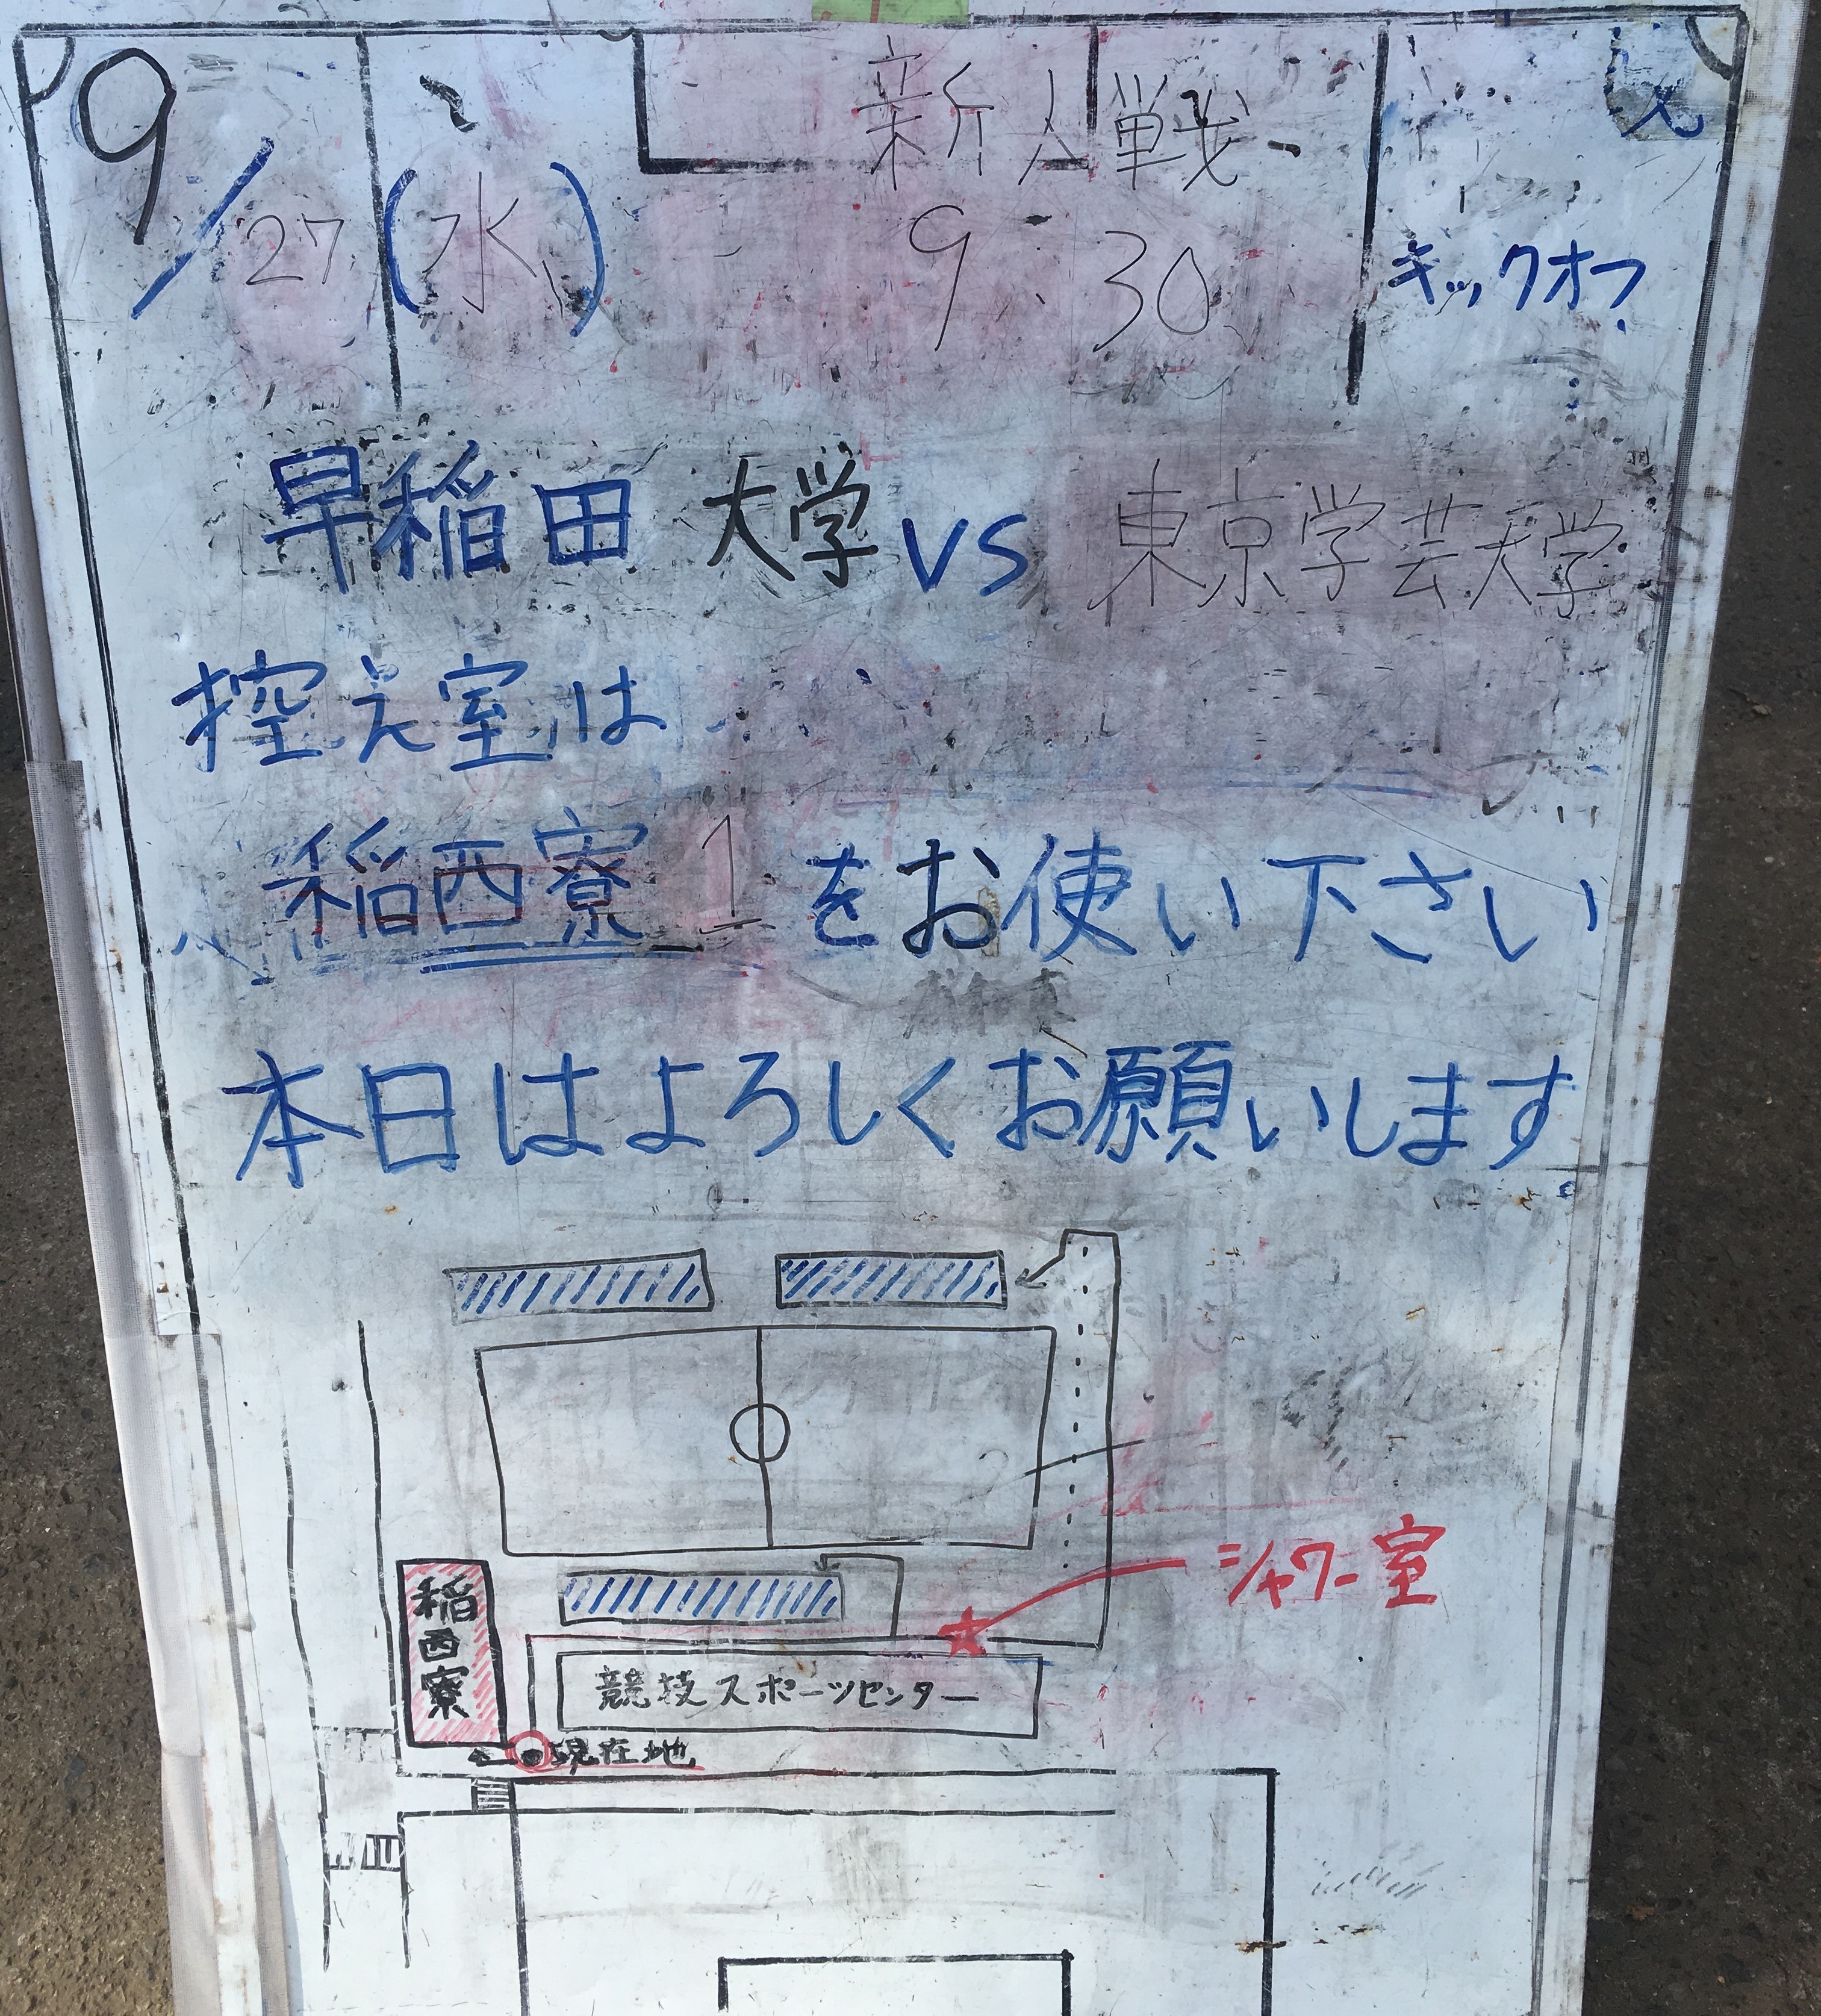 新人戦
9/27(水) 9:30 キックオフ
早稲田大学 VS 東京学芸大学
控え室は
稲西寮 1 をお使い下さい
本日はよろしくお願いします
シャワー室
稲西寮
競技スポーツセンター
現在地